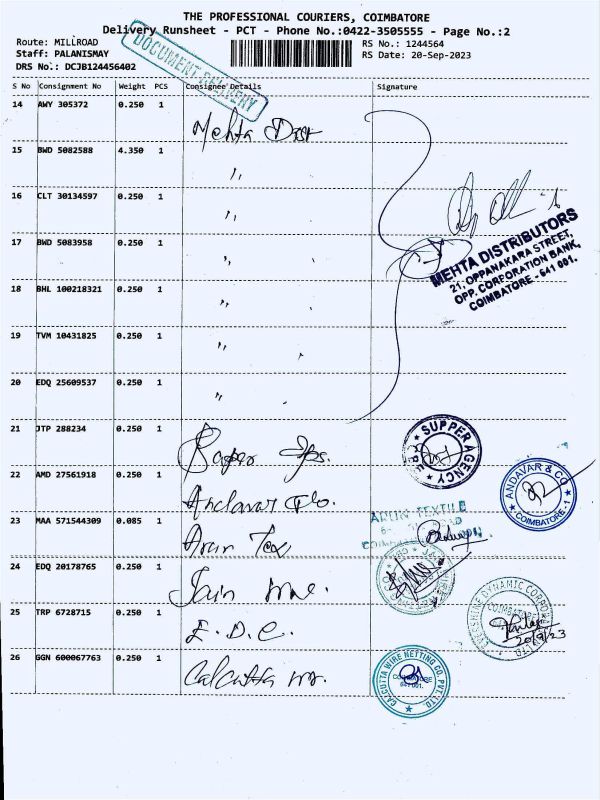 THE PROFESSIONAL COURIERS, COIMBATORE
Delivery Runsheet - PCT - Phone No.:0422-3505555 - Page No.:2
Route: MILLROAD
RS No.: 1244564
Staff: PALANISMAY
RS Date: 20-Sep-2023
DRS No.: DCJB124456402
DOCUMENT DELIVERY
S No Consignment No Weight PCS Consignee Details Signature
14 AWY 305372 0.250 1 Mehta Dist
15 BWD 5082588 4.350 1 "
16 CLT 30134597 0.250 1 "
17 BWD 5083958 0.250 1 "
MEHTA DISTRIBUTORS
21, OPPANAKARA STREET,
OPP. CORPORATION BANK,
COIMBATORE - 641 001.
18 BHL 100218321 0.250 1 "
19 TVM 10431825 0.250 1 "
20 EDQ 25609537 0.250 1 "
21 JTP 288234 0.250 1
SUPPER AGENCY
22 AMD 27561918 0.250 1 Andavar Co.
ANDAVAR & CO
COIMBATORE-1
23 MAA 571544309 0.085 1 Arun Tex
ARUN TEXTILE
24 EDQ 20178765 0.250 1 Jain
25 TRP 6728715 0.250 1 E.D.C.
DYNAMIC
20/9/23
26 GGN 600067763 0.250 1 Calcutta
CALCUTTA WIRE NETTING CO. PVT. LTD.
COIMBATORE
641 001.